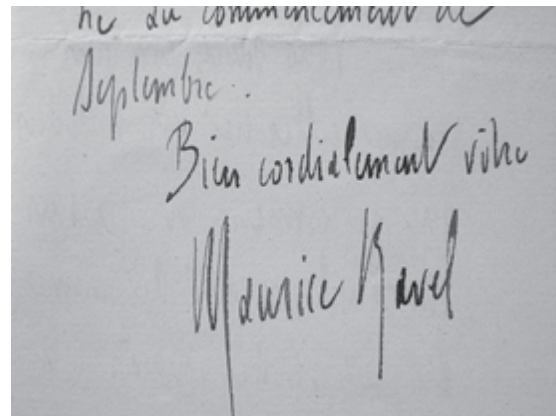 ne au commencement de
Septembre.
Bien cordialement vôtre
Maurice Ravel